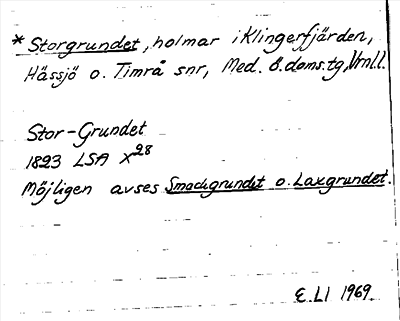 * Storgrundet, holmar i Klingerfjärden,
Hässjö o. Timrå snr, Med. ö. doms.tg, Vrnl.l.
Stor-Grundet
1823 LSA X28
Möjligen avses Smackgrundet o. Laxgrundet.
E. LI 1969.